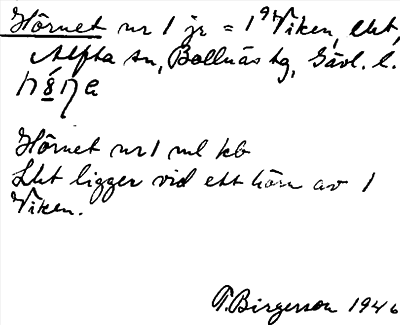 Hörnet nr 1 jr = 1 Viken, lht,
Alfta sn, Bollnäs tg, Gävl. l.
Hörnet nr 1 ml kb
Lht ligger vid ett hörn av 1
Viken.
T. Birgerson 1946